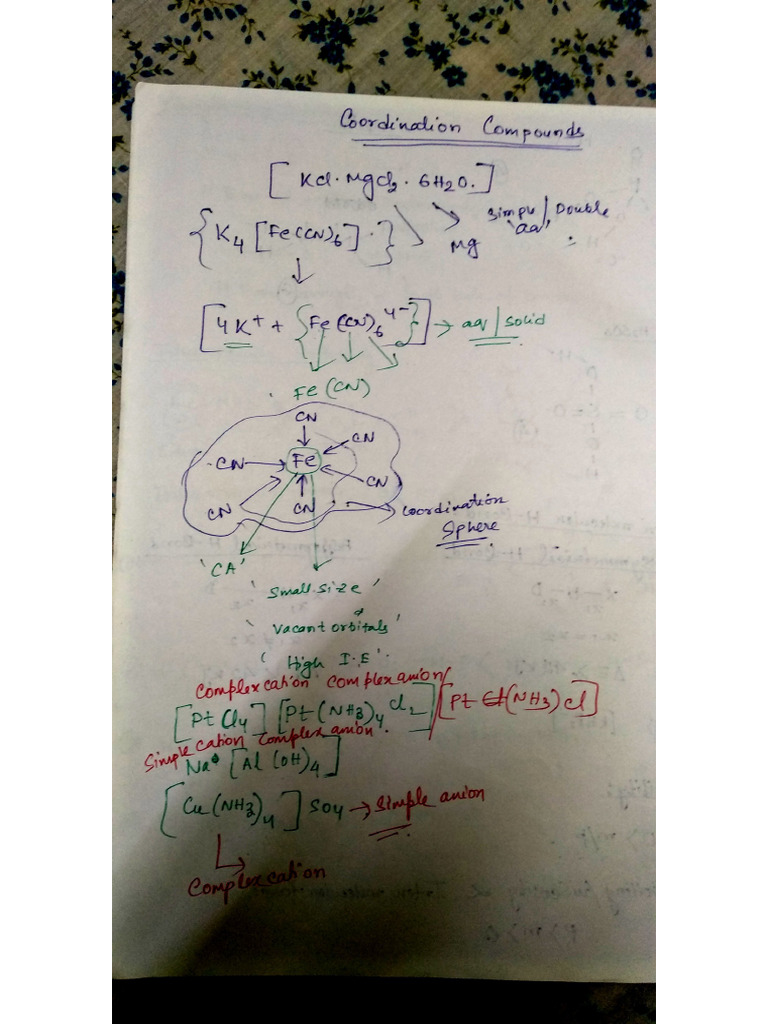 Coordination Compounds
[KCl. MgCl2. 6H2O.]
Simple/Double
'aq'
{K4 [Fe(CN)6].}
Mg
[4K+ + {Fe(CN)6 4-}] → aq/solid
Fe(CN)
CN
CN
CN
Fe
CN
CN
CN
Coordination
Sphere
'CA'
'Small size'
'Vacant orbitals'
'High I.E'.
Complex cation Complex anion/
[PtCl4] [Pt(NH3)4 Cl2] / [Pt (NH3) Cl]
Simple cation Complex anion.
Na [Al(OH)4]
[Cu(NH3)4] SO4 → Simple anion
Complex cation